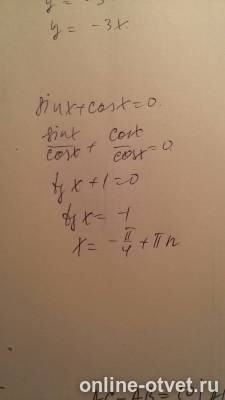 y = -3x.
sinx+cosx=0.
sinx/cosx + cosx/cosx=0
tg x+1=0
tg x= -1
x= -π/4 + πn
online-otvet.ru